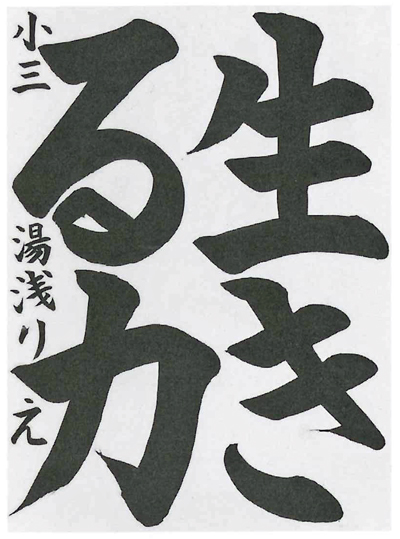 生き
る力
小三 湯浅りえ